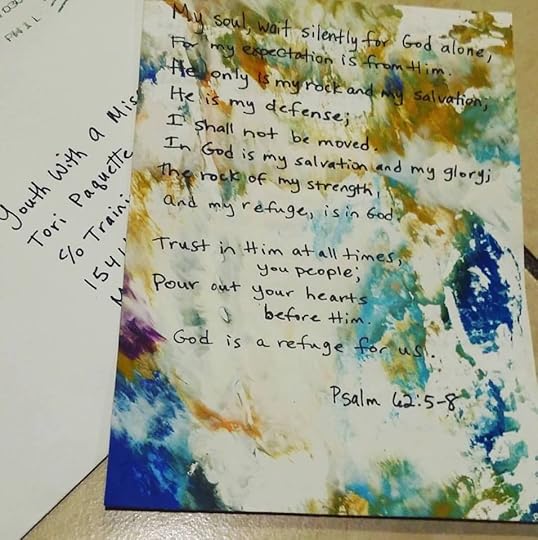 My soul, wait silently for God alone,
For my expectation is from Him.
He only is my rock and my salvation;
He is my defense;
I shall not be moved.
In God is my salvation and my glory;
The rock of my strength,
And my refuge, is in God.
Trust in Him at all times,
you people;
Pour out your hearts
before Him.
God is a refuge for us.
Psalm 62:5-8
Youth With a
Tori Paquette
c/o